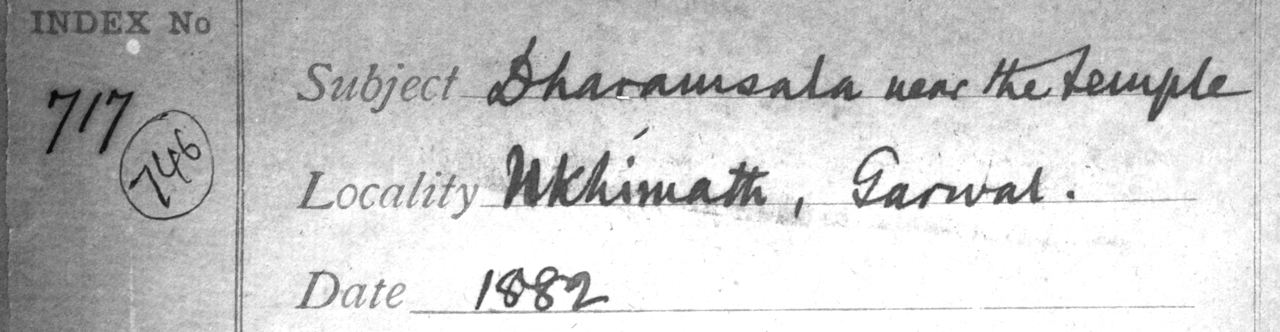 INDEX No
717
746
Subject Dharamsala near the temple
Locality Ukhimath, Garwal.
Date 1882